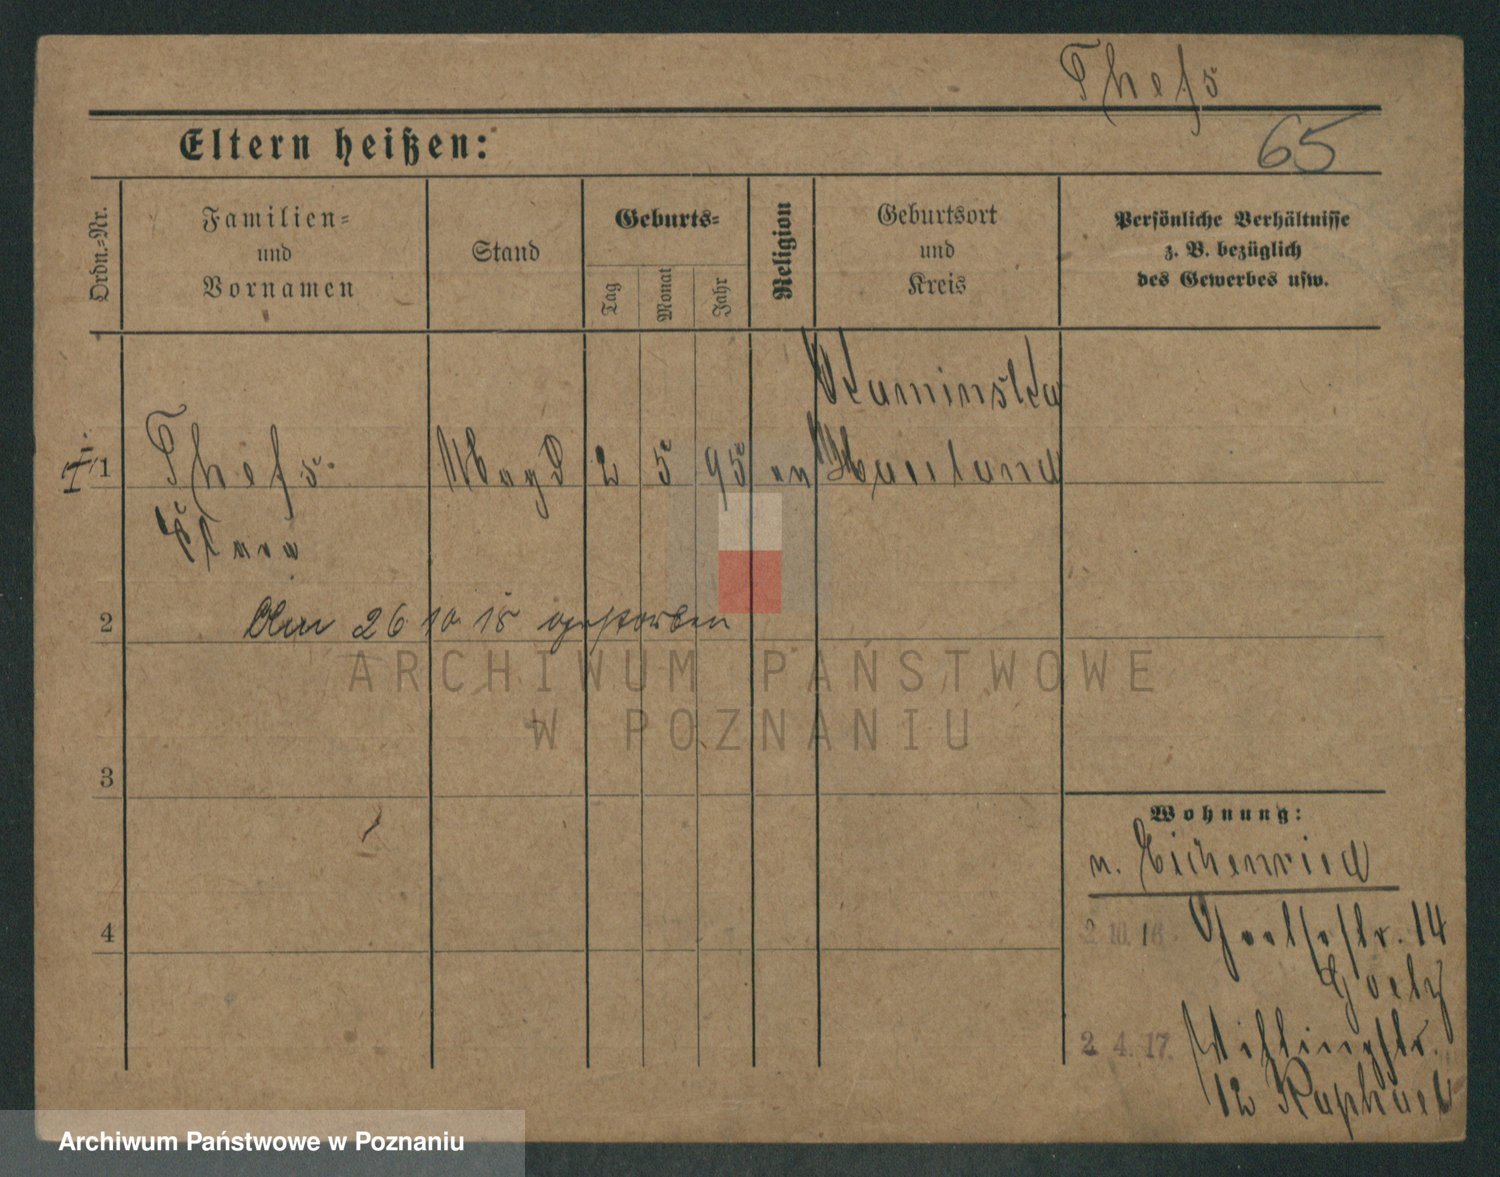 Thefs
65
Eltern heißen:
Ordn.=Nr.
Familien=
und
Vornamen
Stand
Geburts=
Tag
Monat
Jahr
Religion
Geburtsort
und
Kreis
Persönliche Verhältnisse
z. B. bezüglich
des Gewerbes usw.
Kaminska
1 Thefs Magd 2 5 95 ev
Clara
2
26 10 18 gestorben
ARCHIWUM PAŃSTWOWE
W POZNANIU
3
Wohnung:
n. Eichenried
4
2. 10. 16 Goethestr. 14
Goetz
2. 4. 17.
12 Raphael
Archiwum Państwowe w Poznaniu